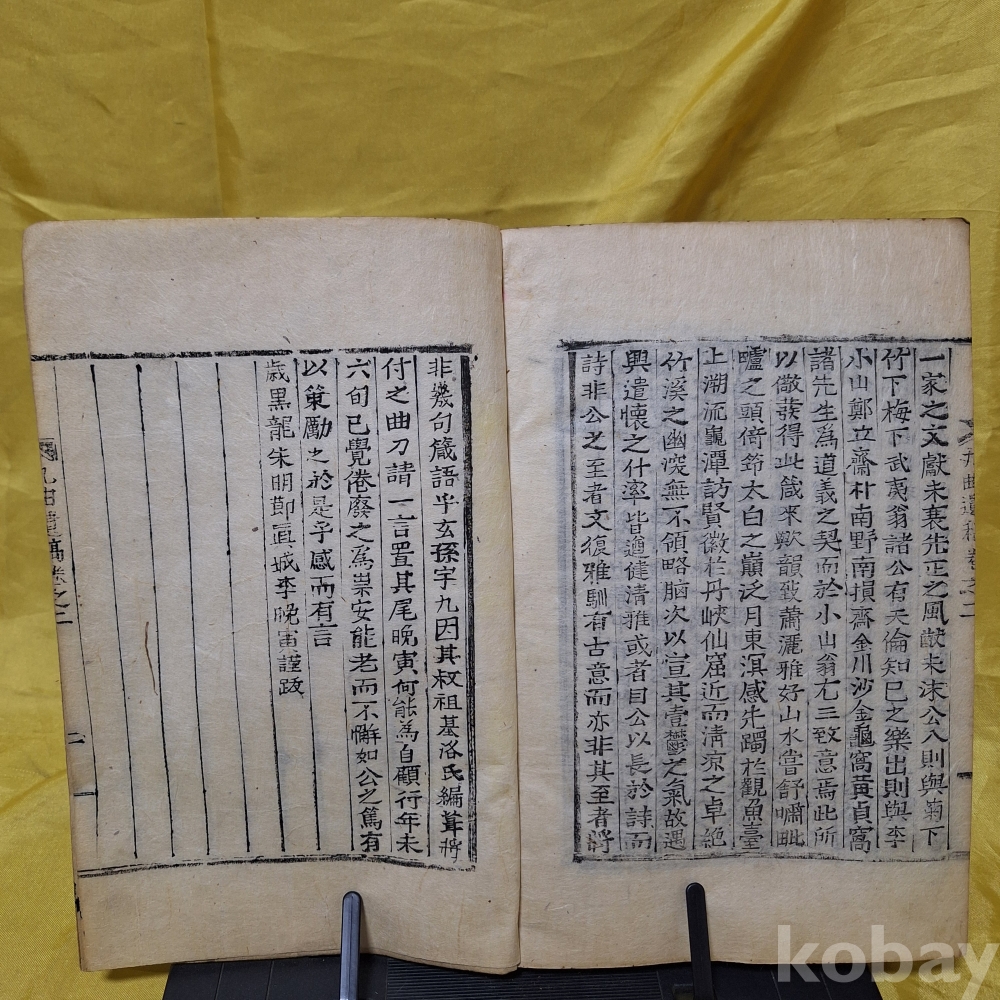 一家之文獻未衰先正之風猷未沫公入則與菊下
竹下梅下武夷翁諸公有天倫知已之樂出則與李
小山鄭立齋朴南野南損齋金川沙金龜窩黃貞窩
諸先生爲道義之契而於小山翁尤三致意焉此所
以儆發得此箴來歟韻致蕭灑雅好山水嘗舒嘯毗
盧之頭倚筇太白之巓泛月東溟感牛躅於觀魚臺
上溯流龜潭訪賢徽於丹峽仙窟近而淸凉之卓絶
竹溪之幽深無不領略腦次以宣其壹鬱之氣故遇
興遣懷之什率皆遒健淸雅或者目公以長於詩而
詩非公之至者文復雅馴有古意而亦非其至者將
非幾句箴語乎玄孫宇九因其叔祖基洛氏編葺將
付之曲刀請一言置其尾晩寅何能為自顧行年未
六旬已覺倦廢之爲祟安能老而不懈如公之篤有
以策勵之於是乎感而有言
歲黑龍朱明節眞城李晩寅謹跋
曲遺稿卷之二
二
kobay